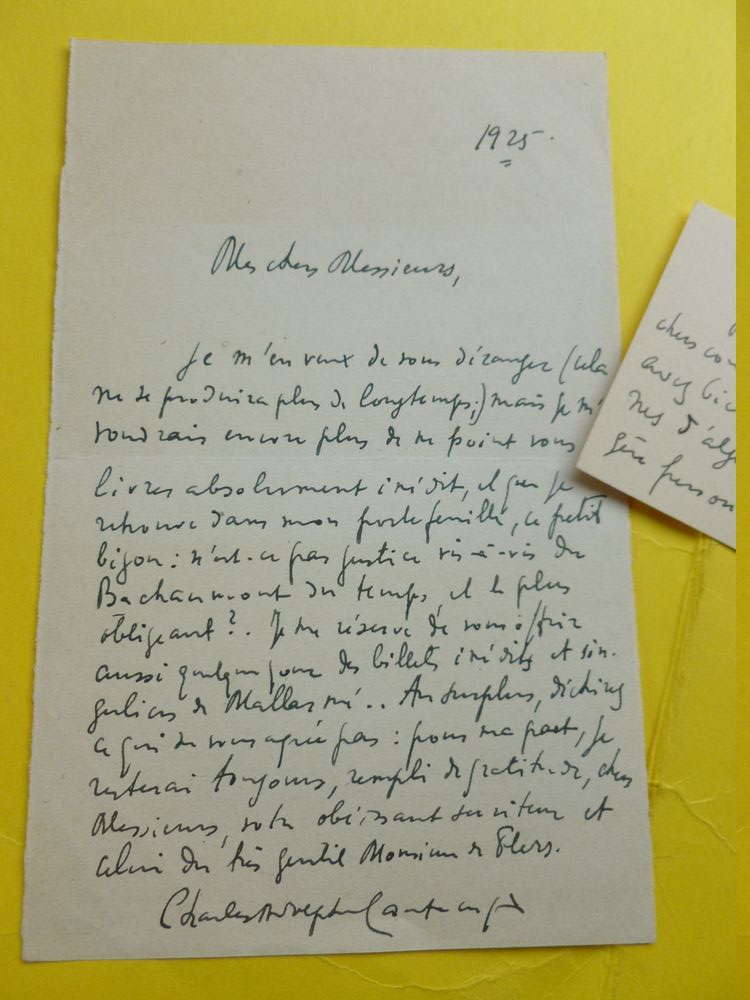 1925.
Mes chers Messieurs,
Je m'en veux de vous déranger (cela
ne se produira plus de longtemps;) mais je m'
voudrais encore plus de ne point vous
livrer absolument inédit, et que je
retrouve dans mon portefeuille, ce petit
bijou: n'est-ce pas justice vis-à-vis du
Bachaumont du temps et le plus
obligeant?. Je me réserve de vous offrir
aussi quelque jour des billets inédits et sin-
guliers de Mallarmé.. Au surplus, déchirez
ce qui ne vous agrée pas: pour ma part, je
resterai toujours, rempli de gratitude, chers
Messieurs, votre obéissant serviteur et
celui du très gentil Monsieur de Flers.
Charles Adolphe Cantacuzène
chers con
avez bie
nes d'alg
gère person